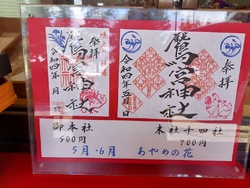 奉拝
鷲宮神社
令和四年五月
奉拝
鷲宮神社
令和四年 月 日
御本社
500円
末社十四社
700円
5月・6月 あやめの花